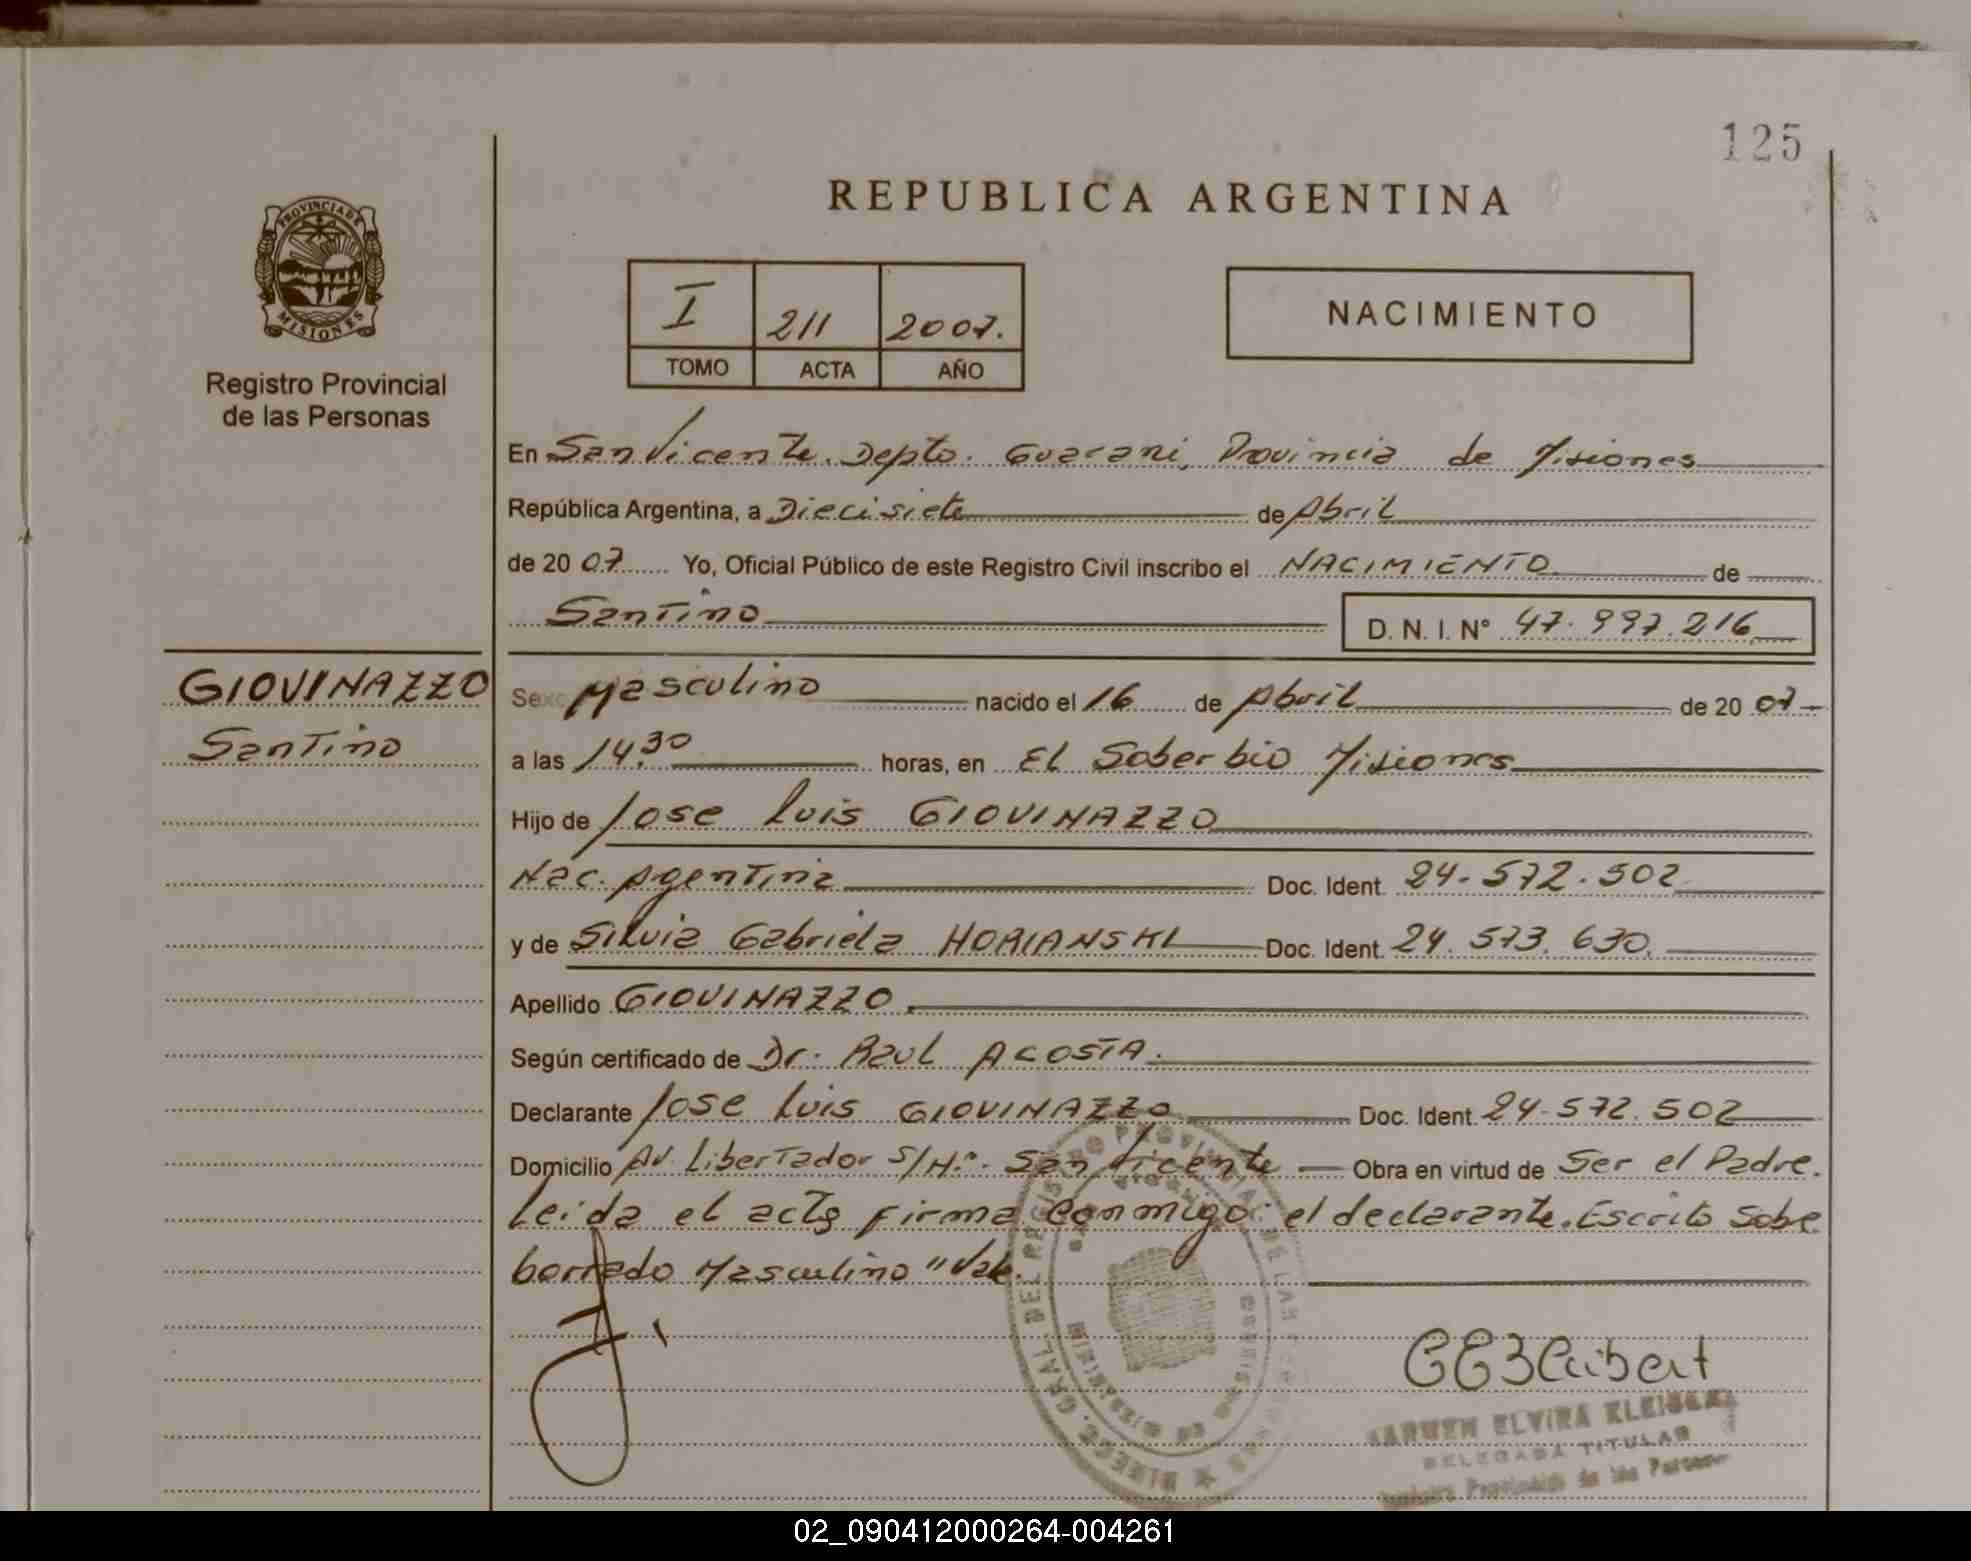 125
REPUBLICA ARGENTINA
PROVINCIA DE
MISIONES
Registro Provincial
de las Personas
I 211 2007.
TOMO ACTA AÑO
NACIMIENTO
En San Vicente. Depto. Guarani, Provincia de Misiones
República Argentina, a Diecisiete de Abril
de 20 07 Yo, Oficial Público de este Registro Civil inscribo el NACIMIENTO de
Santino D. N. I. N° 47.997.216
GIOVINAZZO
Santino
Sexo Masculino nacido el 16 de Abril de 20 07
a las 14,30 horas, en El Soberbio Misiones
Hijo de Jose Luis GIOVINAZZO
Nac. Agentina Doc. Ident. 24-572.502
y de Silvia Gabriela HORIANSKI Doc. Ident. 24.573.630.
Apellido GIOVINAZZO.
Según certificado de Dr. Raul ACOSTA.
Declarante Jose Luis GIOVINAZZO Doc. Ident. 24-572.502
Domicilio Av. Libertador S/N°. San Vicente Obra en virtud de Ser el Padre.
Leida el acta firma conmigo el declarante. Escrito Sobe
borrado Masculino "Vale.
ELVIRA
DELEGADA TITULAR
Provincial de las Personas
02_090412000264-004261